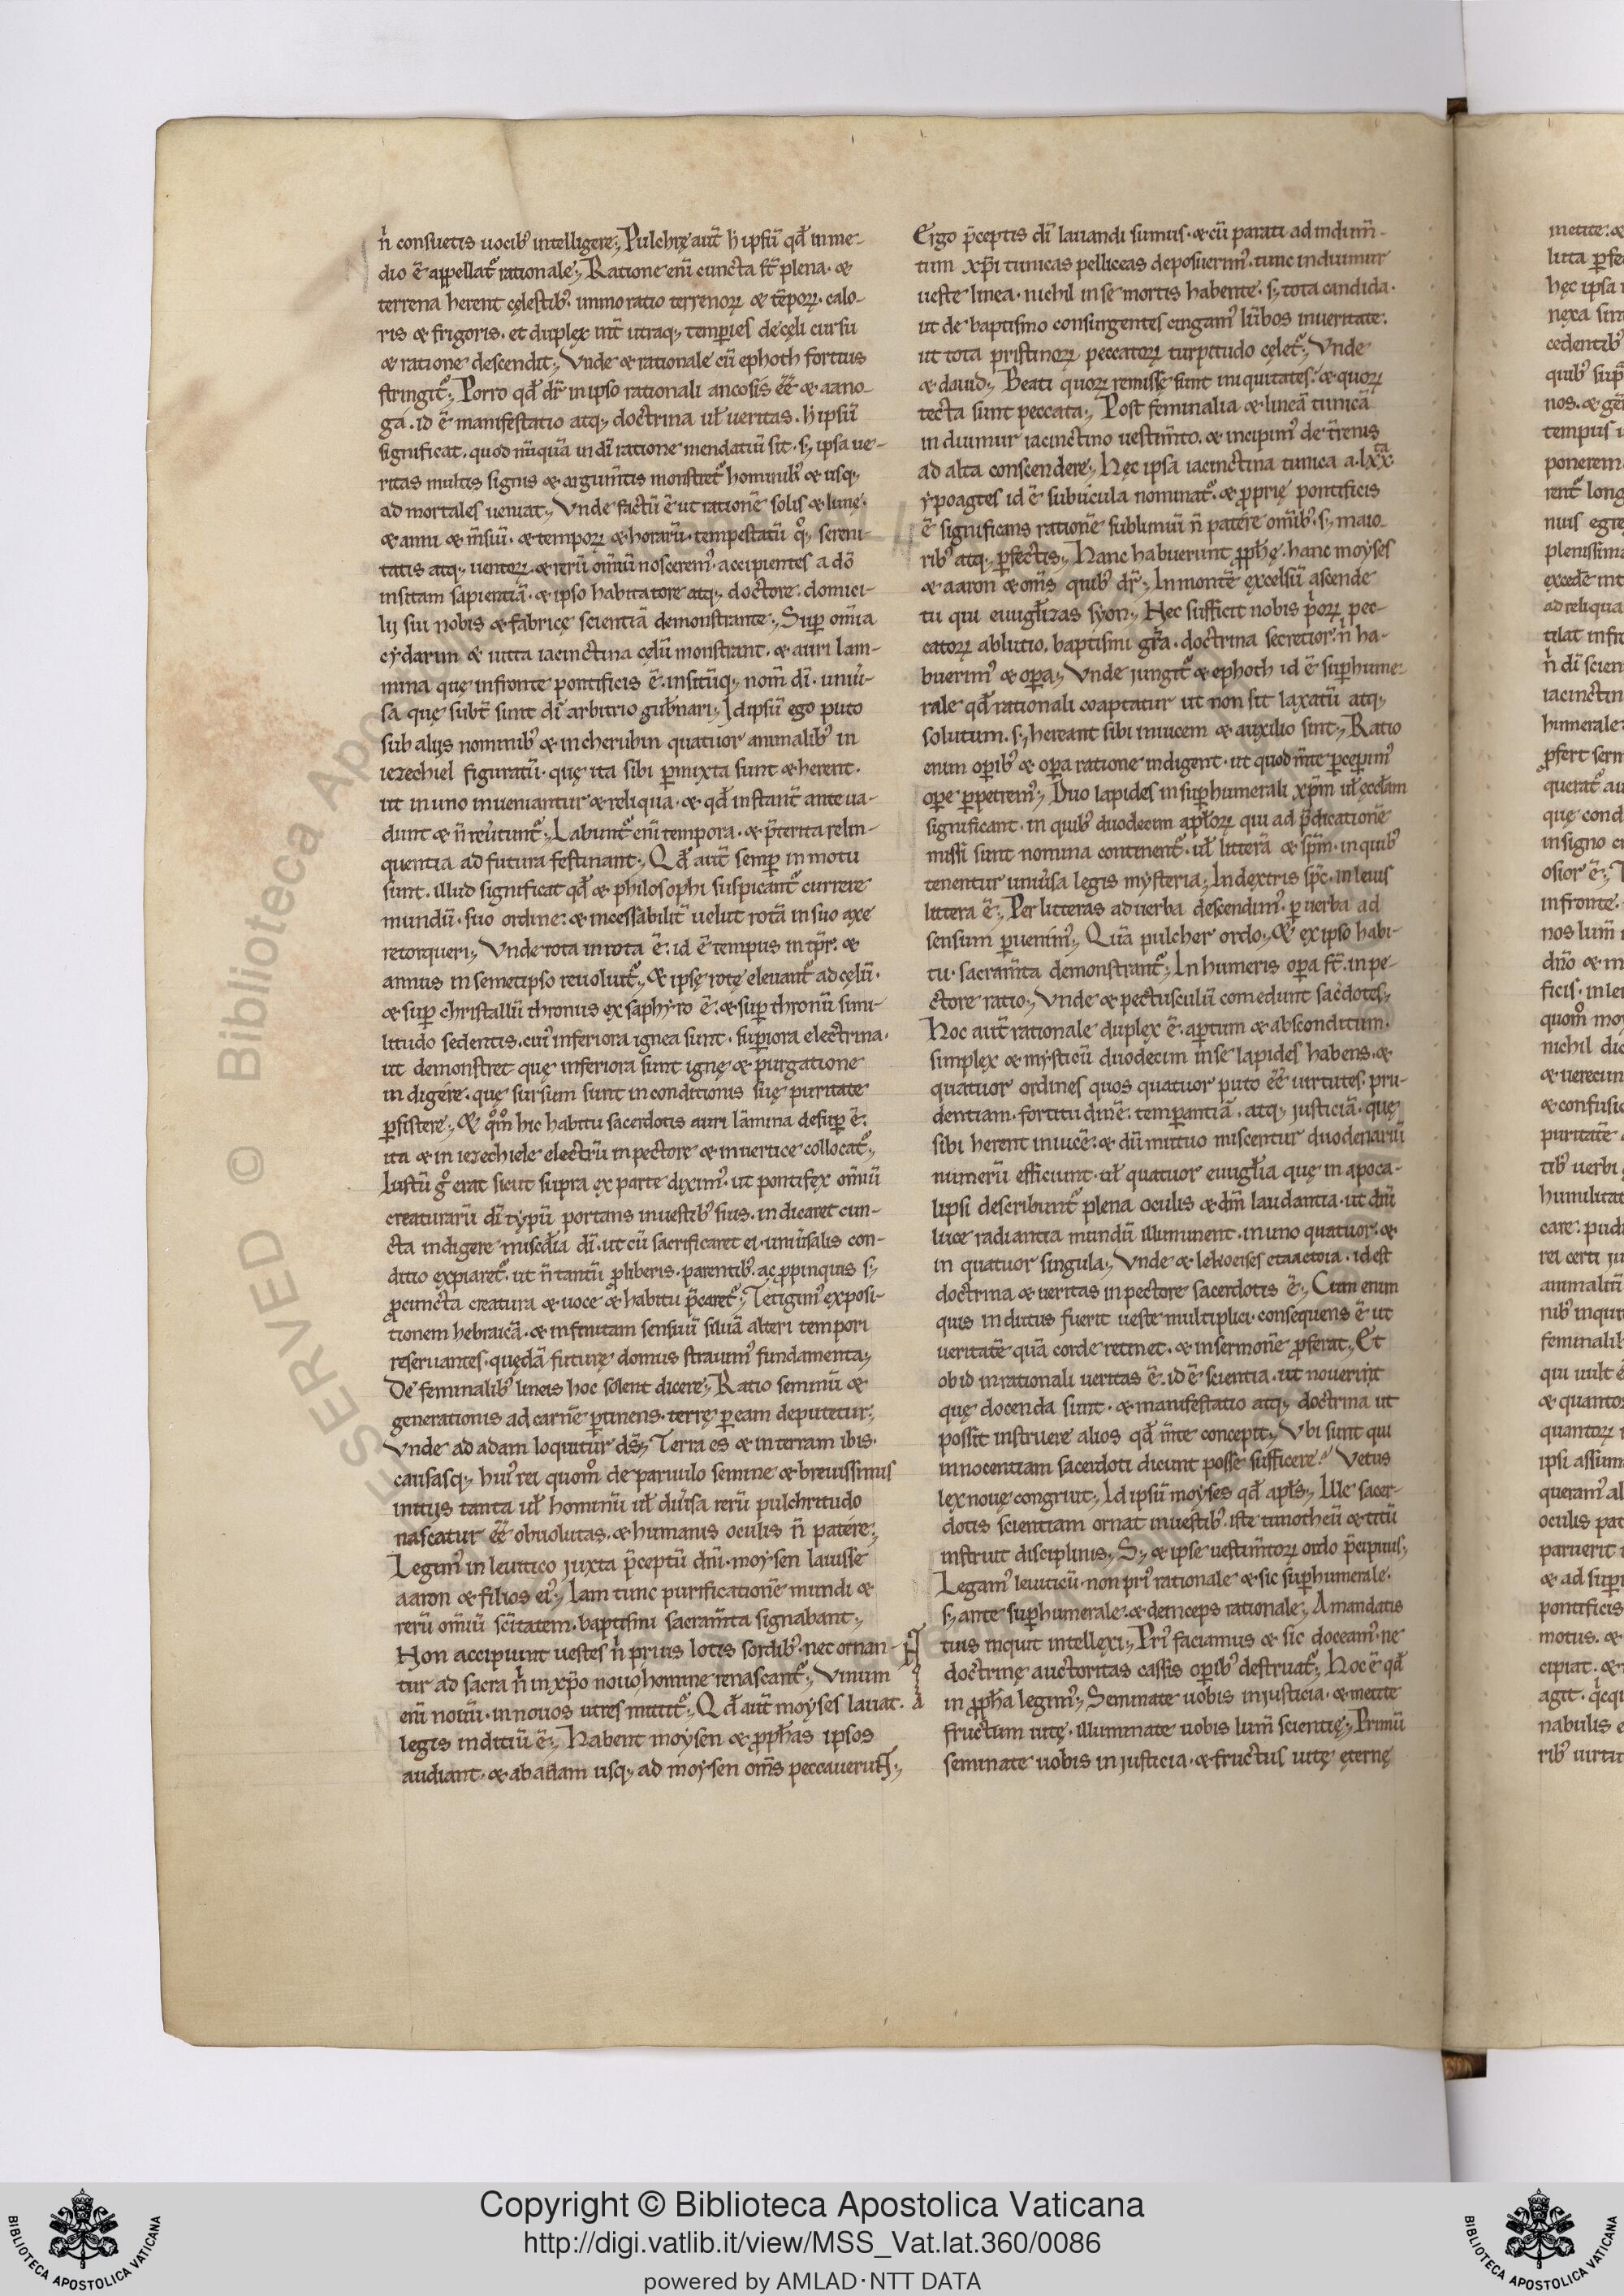 n̄ consuetis uocib; intelligere; Pulchrę aut̄ h̄ ipsū qđ in me-
dio ē appellat᷑ rationale; Ratione eni cuncta st̄ plena· &
terrena herent cęlestib;· immo ratio terrenoꝝ & tēpoꝝ· calo-
ris & frigoris· et duplex int̄ utraq; temperies de cęli cursu
& ratione descendit; Vnde & rationale cū ephoth fortius
stringit᷑; Porro qđ dr̄ in ipso rationali ancosis ēē & aano-
ga· id ē manifestatio atq; doctrina ut ueritas· h̄ ipsū
significat· quod nūquā in dī ratione mendatiū sit· s; ipsa ue-
ritas multis signis & argum̄tis monstret᷑ hominib; & usq;
ad mortales ueniat; Vnde factū ē ut rationē solis & lunę·
& anni & m̄siū· & tempoꝝ & horarū· tempestatū q̊q; sereni-
tatis atq; uentoꝝ· & rerū om̄iū noscerem᷒· accipientes a dō
insitam sapientiā· & ipso habitatore atq; doctore· domici-
lij sui nobis & fabricę scientiā demonstrante; Suꝑ om̄ia
cydarim & uitta iacinctina celū monstrant· & auri lam-
mina quę in fronte pontificis ē· insitūq; nom̄ dī· uniū-
sa quę subt̄ sunt dī arbitrio gub̄nari; Id ipsū ego puto
sub alijs nominib; & in cherubin quatuor animalib; in
iezechiel figuratū· quę ita sibi ꝑmixta sunt & herent·
ut in uno inueniantur & reliqua· & qđ instant̄ ante ua-
dunt & n̄ reūtunt᷑; Labunt᷑ eni tempora· & p̄terita relin-
quentia ad futura festinant; Qđ aut̄ semꝑ in motu
sunt· illud significat qđ & philosophi suspicant᷑ currere
mundū· suo ordine· & incessabilit̄ uelut rotā in suo axe
retorqueri; Vnde rota in rota ē· id ē tempus in tp̄r· &
annus in semetipso reuoluit᷑; & ipsę rotę eleuant᷑ ad cęlū·
& suꝑ christallū thronus ex saphyro ē· & suꝑ thronū simi-
litudo sedentis· cui᷒ inferiora ignea sunt· suꝑiora electrina·
ut demonstret quę inferiora sunt igne & purgatione
indigere· quę sursum sunt in conditionis suę puritate
ꝑsistere; & q̊m̊ hic habitu sacerdotis auri lāmina desuꝑ ē·
ita & in iezechiele electrū in pectore & in uertice collocat᷑;
Iustū g̊ erat sicut supra ex parte dixim᷒· ut pontifex om̄iū
creaturarū dī typū portans in uestib; suis· indicaret cun-
cta indigere misc̄dia dī· ut cū sacrificaret ei· uniūsalis con-
ditio expiaret᷑· ut n̄ tantū ꝓ liberis· parentib;· ac ꝓpinquis s;
ꝓ cuncta creatura & uoce & habitu p̄caret᷑; Tetigim᷒ exposi-
tionem hebraicā· & infinitam sensuū siluā alteri tempori
reseruantes· quędā futurę domus strauim᷒ fundamenta;
De feminalib; lineis hoc solent dicere; Ratio seminū &
generationis ad carnē ꝑtinens· terrę ꝑ eam deputetur;
Vnde ad adam loquitur ds̄; Terra es & in terram ibis·
causasq; hui᷒ rei quom̊ de paruulo semine & breuissimis
initijs tanta ut hominū ut diūsa rerū pulchritudo
nascatur ēē obuolutas· & humanis oculis n̄ patere;
Legim᷒ in leuitico juxta p̄ceptū dn̄i· moysen lauisse
aaron & filios ei᷒; Iam tunc purificationē mundi &
rerū om̄iū sc̄itatem· baptismi sacram̄ta signabant;
Non accipiunt uestes n̄ prius lotis sordib;· nec ornan-
tur ad sacra n̄ in xp̄o nouo homine renascant᷑; Vinum
eni nouū· in nouos utres mittit᷑; Qđ aut̄ moyses lauat·
legis inditiū ē; Habent moysen & ꝓph̄as ipsos
audiant· & ab adam usq; ad moysen om̄s peccauerunt;
Ergo p̄ceptis dī lauandi sumus· & cū parati ad indum̄-
tum xp̄i tunicas pelliceas deposuerim᷒· tunc induimur
ueste linea· nichil in se mortis habente· s; tota candida·
ut de baptismo consurgentes cingam᷒ lūbos in ueritate·
ut tota pristinoꝝ peccatoꝝ turpitudo celet᷑; Vnde
& dauid; Beati quoꝝ remisse sunt iniquitates· & quoꝝ
tecta sunt peccata; Post feminalia & lineā tunicā
induimur iacinctino uestim̄to· & incipim᷒ de t̄renis
ad alta conscendere; Hęc ipsa iacinctina tunica a· lxx^ta·
ypoagtes id ē subucula nominat᷑· & proprię pontificis
ē significans rationē sublimiū n̄ patere om̄ib;· s; maio-
rib; atq; ꝑfectis; Hanc habuerunt ꝓph̄ę· hanc moyses
& aaron & om̄s quib; dr̄; In montē excelsū ascende
tu qui euuḡlizas syon; Nec sufficit nobis p̄oꝝ pec-
catoꝝ ablutio· baptismi gr̄a· doctrina secretior· n̄ ha-
buerim᷒ & oꝑa; Vnde jungit᷑ & ephoth id ē suꝑhume-
rale qđ rationali coaptatur ut non sit laxatū atq;
solutum· s; hereant sibi inuicem & auxilio sint; Ratio
enim oꝑib; & oꝑa ratione indigent· ut quod m̄te ꝑcepim᷒
oꝑe ꝑpetrem᷒; Duo lapides in suꝑhumerali xp̄m ut ęcctam
significant· in quib; duodecim aptoꝝ qui ad p̄dicationē
missi sunt nomina continent᷑· ut litterā & sp̄m· in quib;
tenentur uniūsa legis mysteria; In dextris sp̄c· in leuis
littera ē; Per litteras ad uerba descendim᷒· ꝑ uerba ad
sensum ꝑuenim᷒; Quā pulcher ordo; & ex ipso habi-
tu· sacram̄ta demonstrant᷑; In humeris oꝑa st̄· in pe-
ctore ratio; Vnde & pectusculū comedunt sac̄dotes;
Hoc aut̄ rationale duplex ē· aꝑtum & absconditum·
simplex & mysticū duodecim in se lapides habens· &
quatuor ordines quos quatuor puto ēē uirtutes· pru-
dentiam· fortitudinē· temꝑantiā· atq; justiciā· quę
sibi herent inuicē· & dū mutuo miscentur duodenariū
numerū efficiunt· ut quatuor euuḡlia quę in apoca-
lipsi describunt᷑ plena oculis & dn̄i laudantia· ut dn̄i
luce radiantia mundū illuminent· in uno quatuor· &
in quatuor singula; Vnde & lekoeises etaactoia· id est
doctrina & ueritas in pectore sacerdotis ē; Cum enim
quis indutus fuerit ueste multiplici· consequens ē ut
ueritatē quā corde retinet· & in sermonē ꝓferat; Et
ob id in rationali ueritas ē· id ē scientia· ut nouerint
quę docenda sunt· & manifestatio atq; doctrina ut
possit instruere alios qđ m̄te concepit; Vbi sunt qui
innocentiam sacerdoti dicunt posse sufficere? Vetus
lex nouę congruit; Id ipsū moyses qđ apts; Ille sacer-
dotis scientiam ornat in uestib;· iste timotheū & titū
instruit disciplinis; S; & ipse uestim̄toꝝ ordo p̄cipuus;
Legam᷒ leuiticū· non pri᷒ rationale & sic suꝑhumerale·
s; ante suꝑhumerale· & deinceps rationale; A mandatis
tuis inquit intellexi; Pri᷒ faciamus & sic doceam᷒· ne
doctrinę auctoritas cassis oꝑib; destruat᷑; Hoc ē qđ
in ꝓph̄a legim᷒; Seminate uobis in justicia· & metite
fructum uitę· illuminate uobis lum̄ scientię; Primū
seminate uobis in justicia· & fructus uitę ęternę
Copyright © Biblioteca Apostolica Vaticana
http://digi.vatlib.it/view/MSS_Vat.lat.360/0086
powered by AMLAD·NTT DATA
BIBLIOTECA APOSTOLICA VATICANA
BIBLIOTECA APOSTOLICA VATICANA